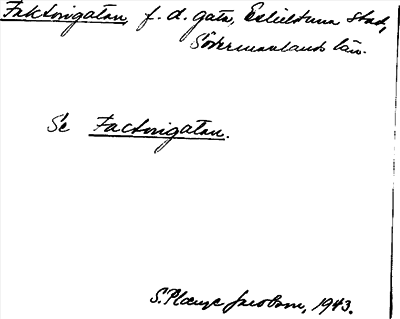 Faktorigatan, f. d. gata, Eskilstuna stad,
Södermanlands län.
Se Factorigatan.
S. Plænge Jacobson, 1943.